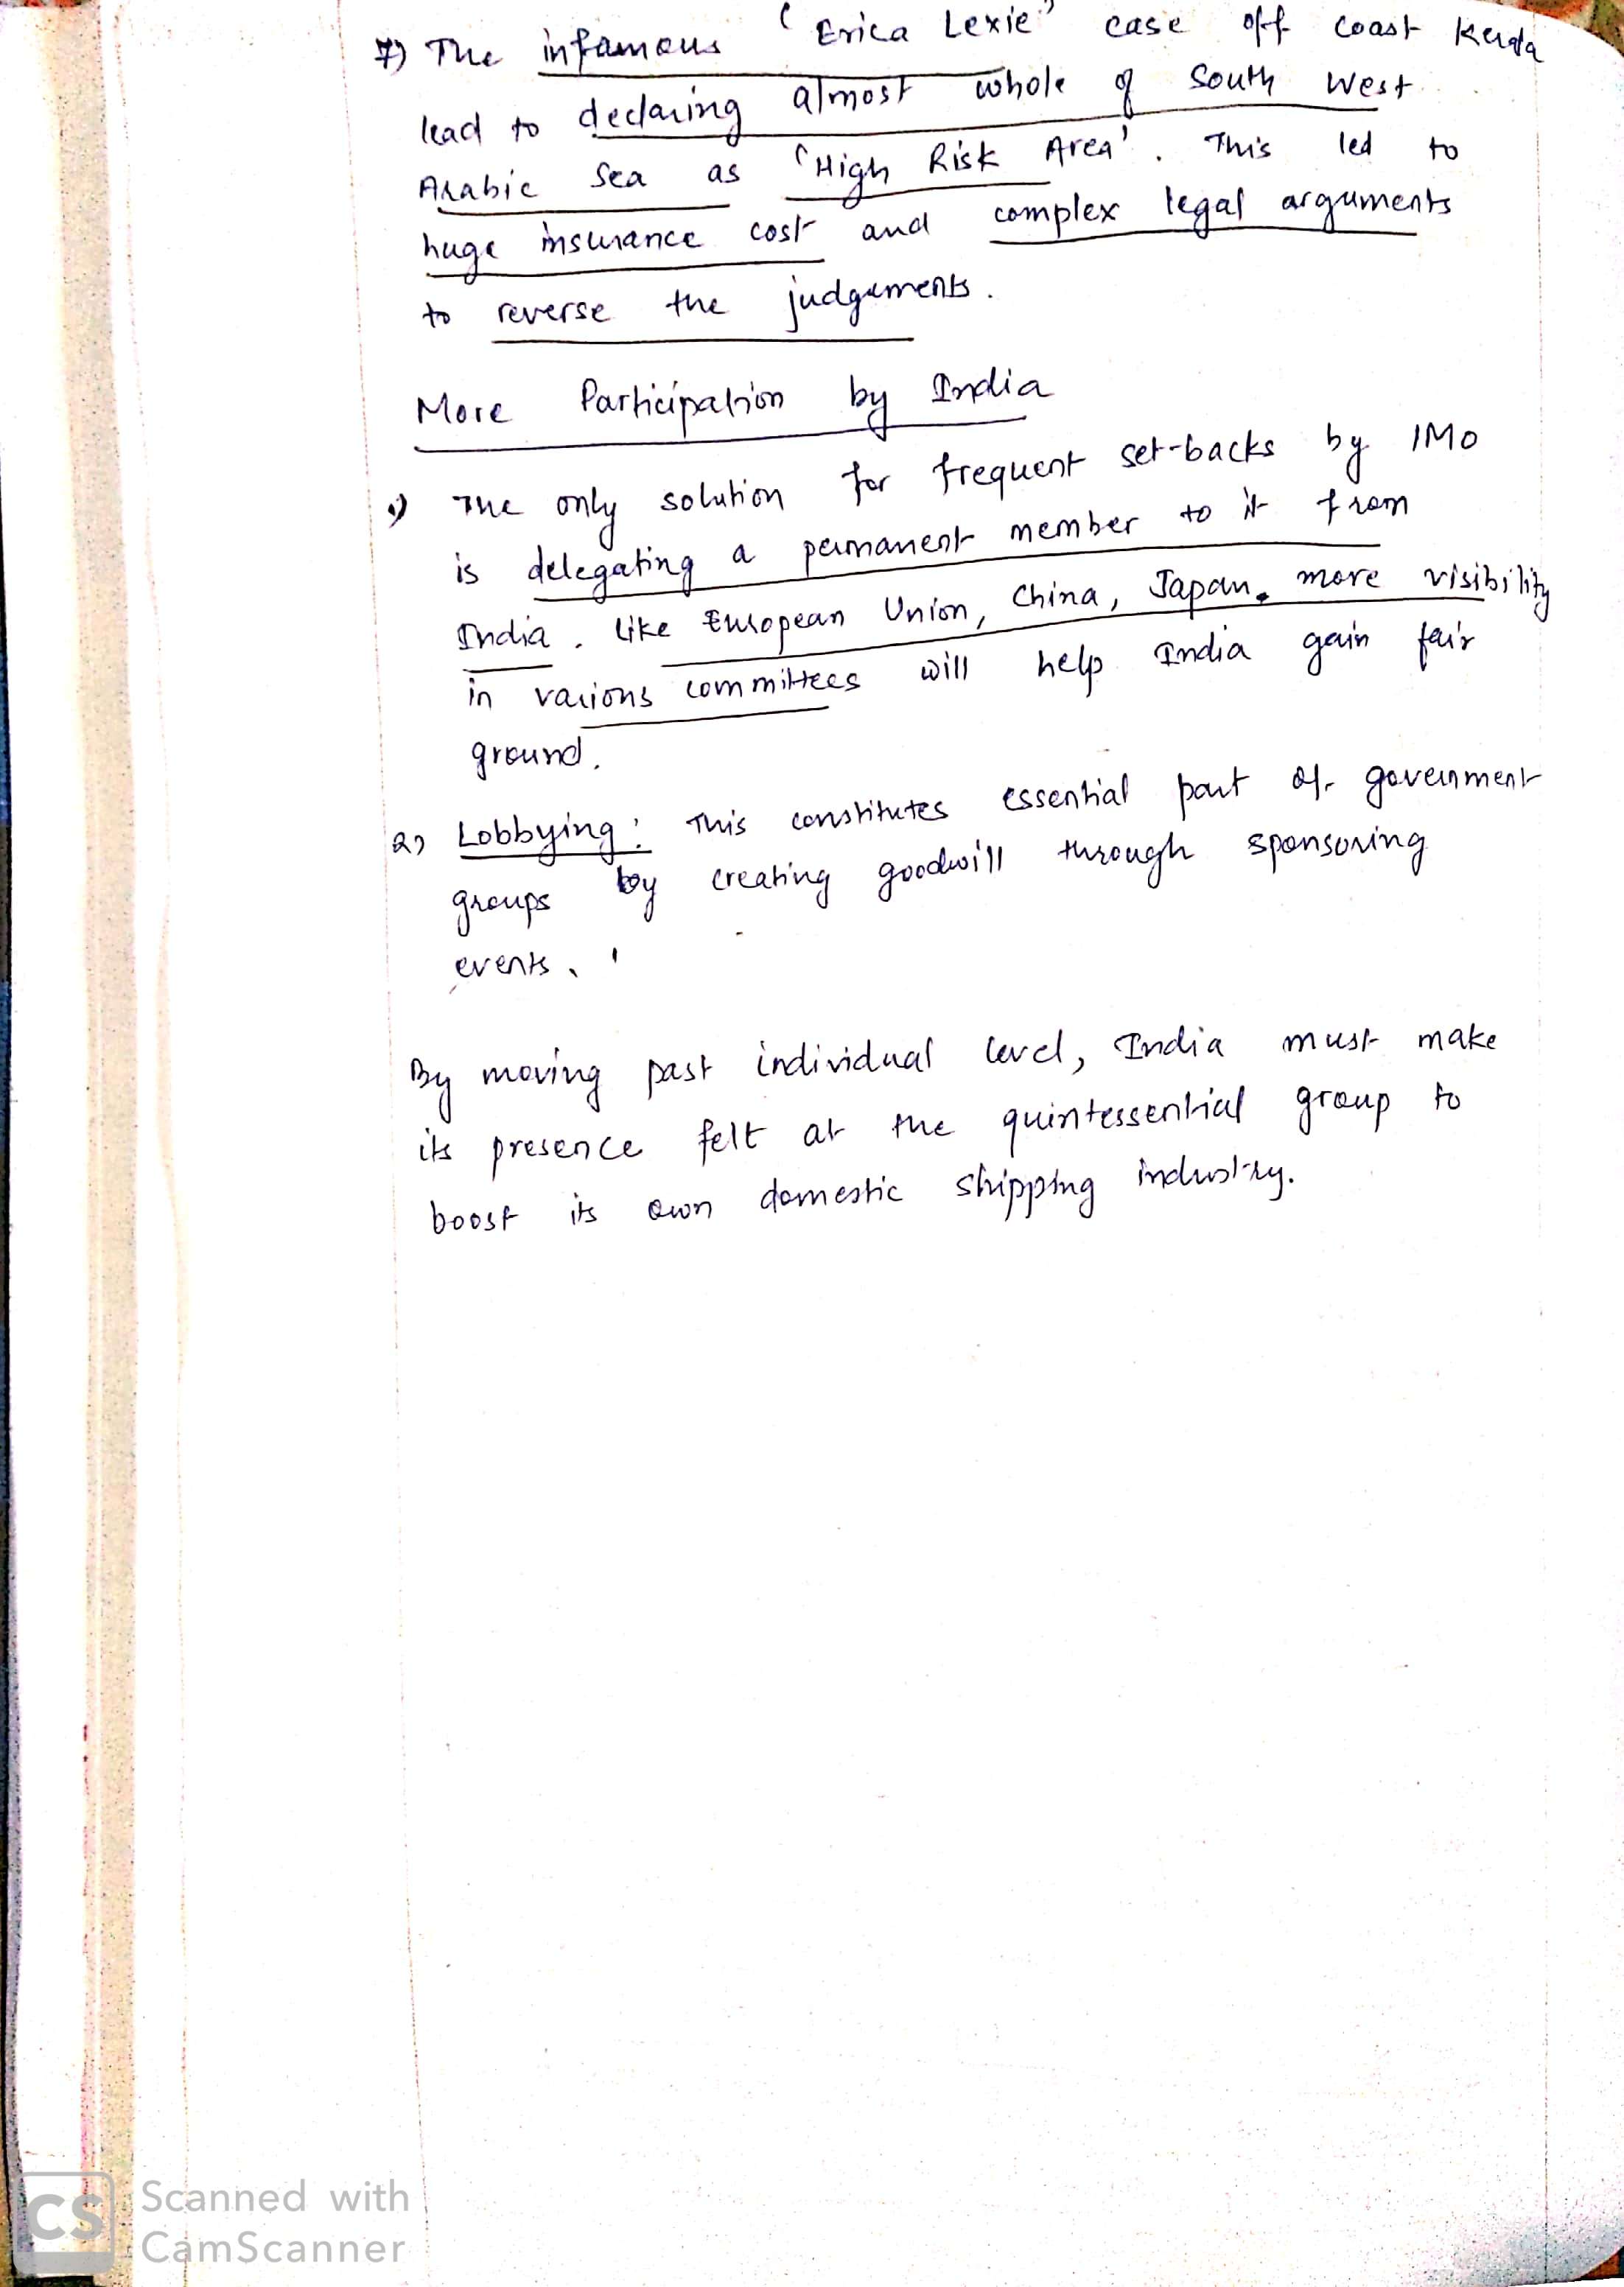 7) The infamous ‘Erica Lexie’ case off coast Kerala
lead to declaring almost whole of South West
Arabic Sea as ‘High Risk Area’. This led to
huge insurance cost and complex legal arguments
to reverse the judgements.
More Participation by India
1) The only solution for frequent set-backs by IMO
is delegating a permanent member to it from
India. Like European Union, China, Japan, more visibility
in various committees will help India gain fair
ground.
2) Lobbying: This constitutes essential part of government
groups by creating goodwill through sponsoring
events.
By moving past individual level, India must make
its presence felt at the quintessential group to
boost its own domestic shipping industry.
CS Scanned with
CamScanner